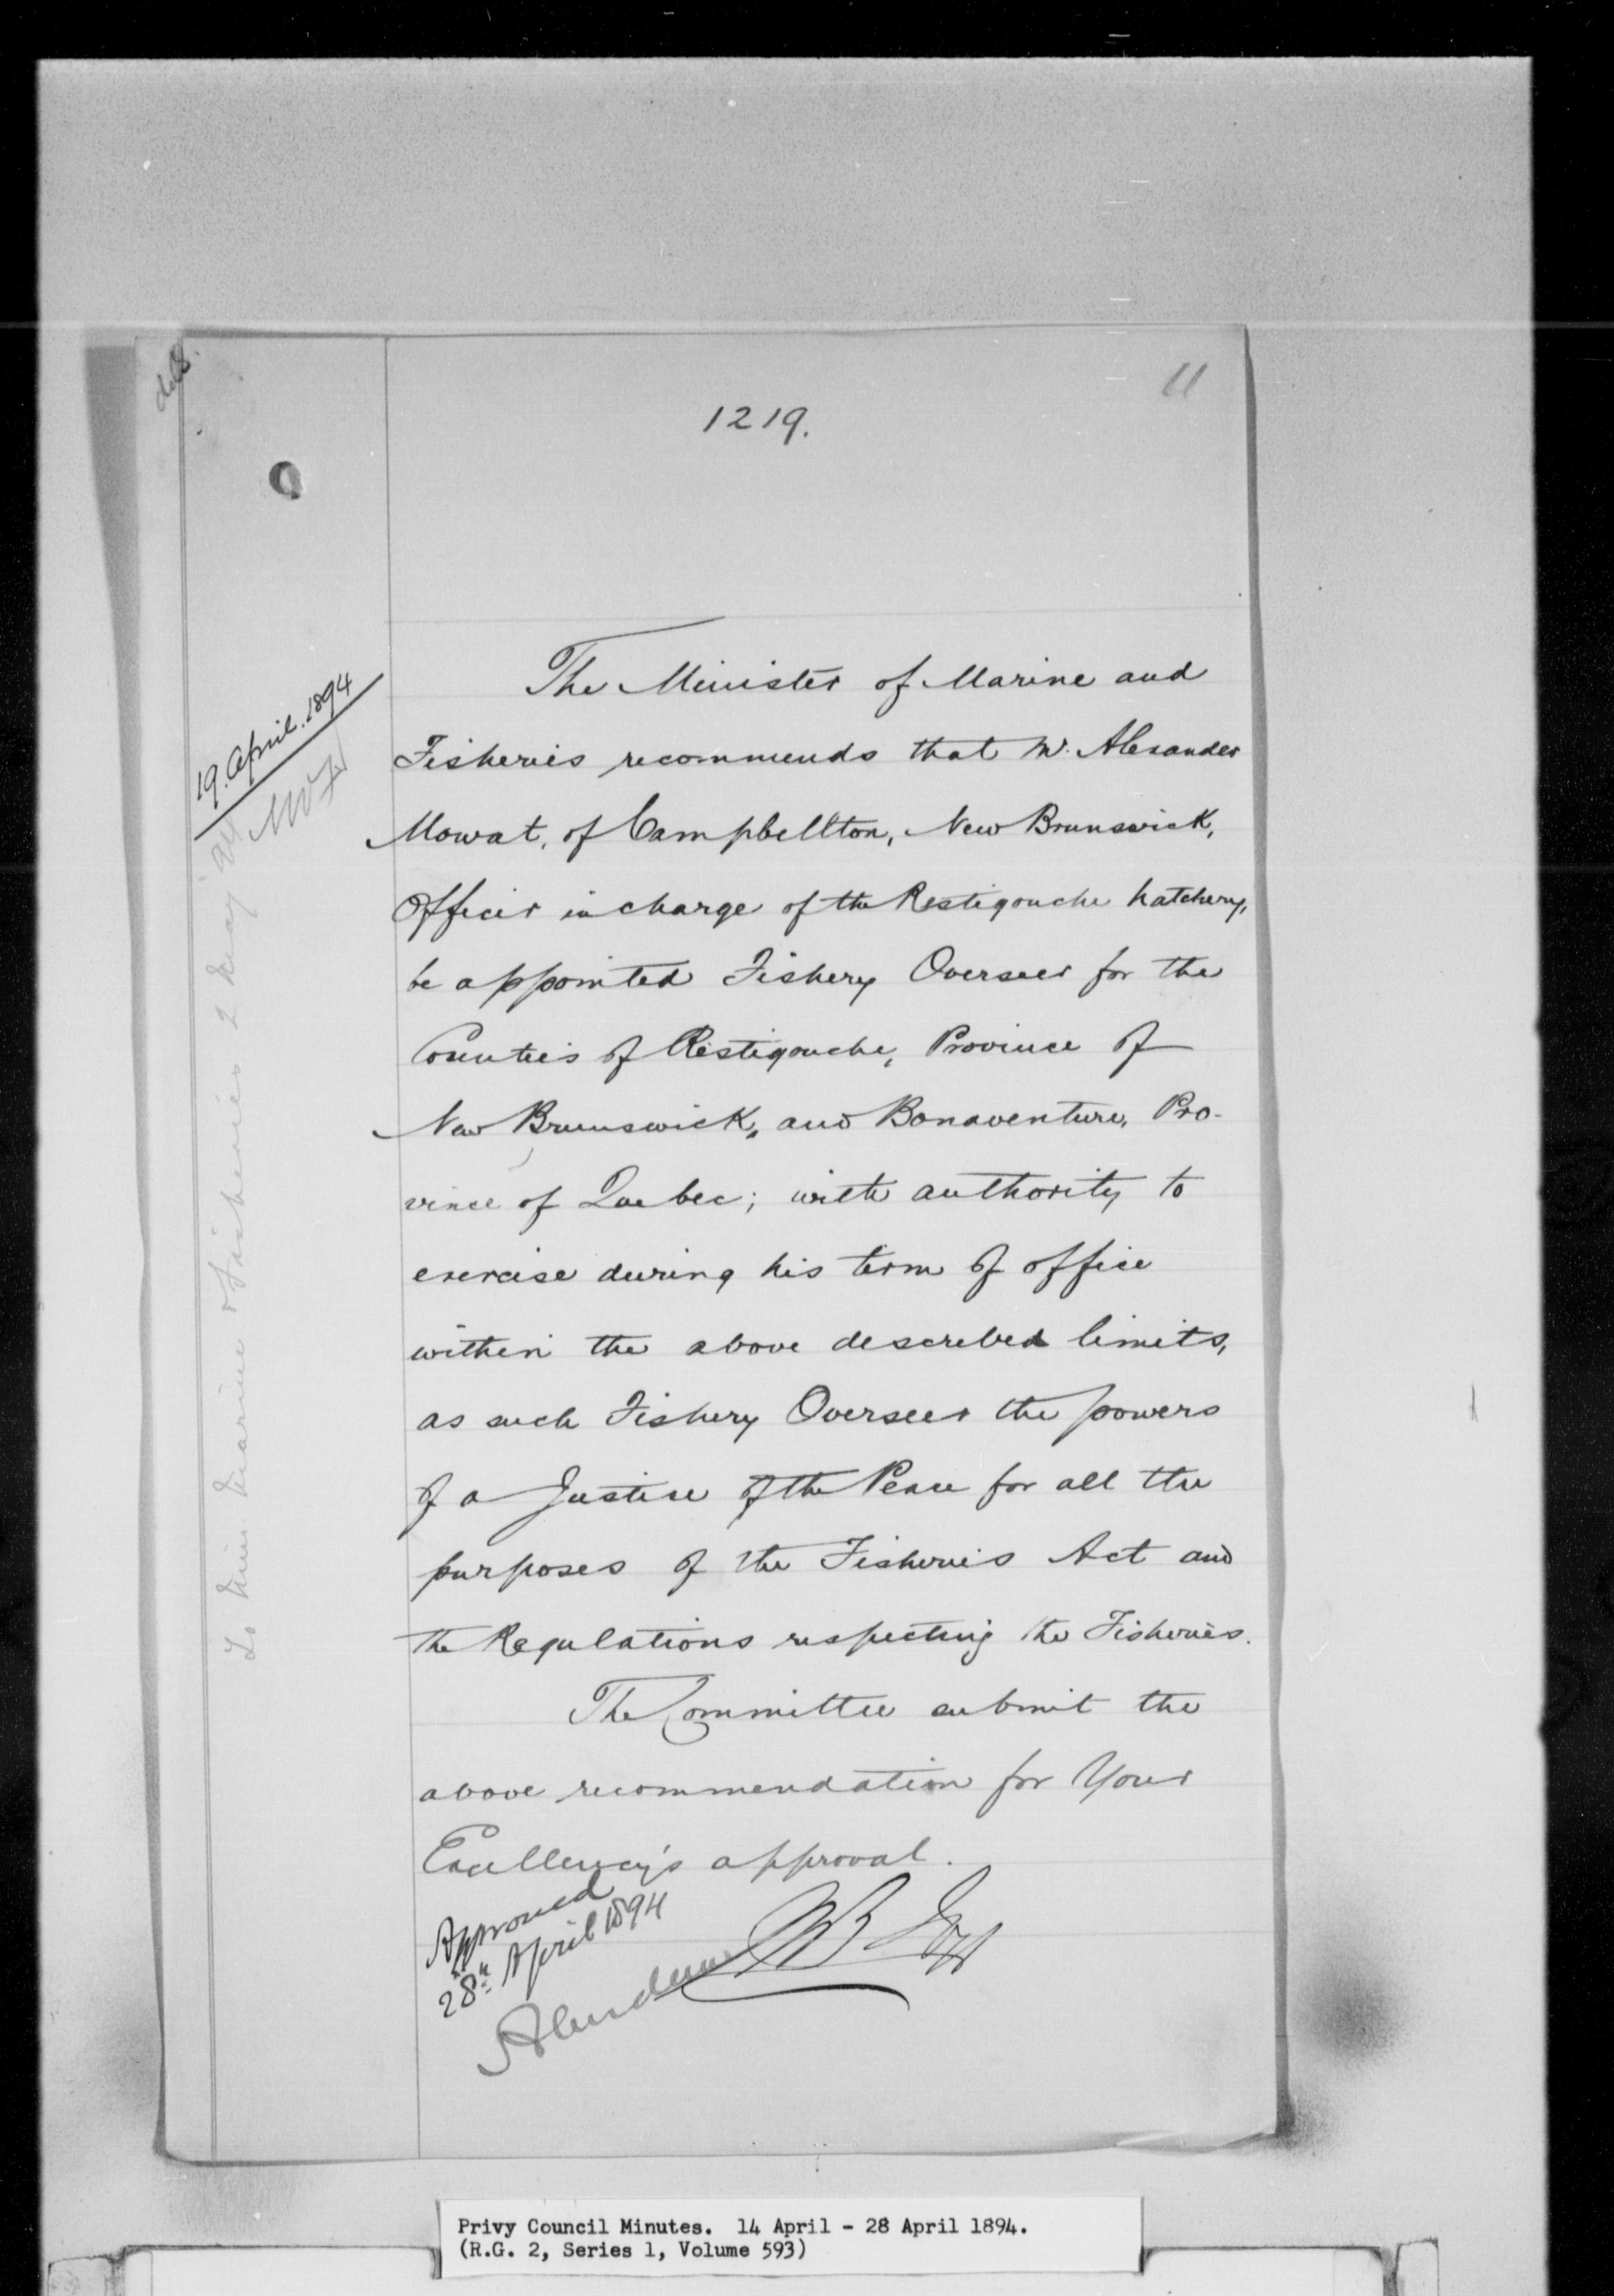 11
1219.
19. April. 1894
To Min. Marine & Fisheries 2 May 94
The Minister of Marine and
Fisheries recommends that Mr. Alexander
Mowat, of Campbellton, New Brunswick,
Officer in charge of the Restigouche hatchery,
be appointed Fishery Overseer for the
Counties of Restigouche, Province of
New Brunswick, and Bonaventure, Pro-
vince of Quebec; with authority to
exercise during his term of office
within the above described limits,
as such Fishery Overseer the powers
of a Justice of the Peace for all the
purposes of the Fisheries Act and
the Regulations respecting the Fisheries.
The Committee submit the
above recommendation for Your
Excellency's approval.
Approved
28th April 1894
Aberdeen
Privy Council Minutes. 14 April - 28 April 1894.
(R.G. 2, Series 1, Volume 593)